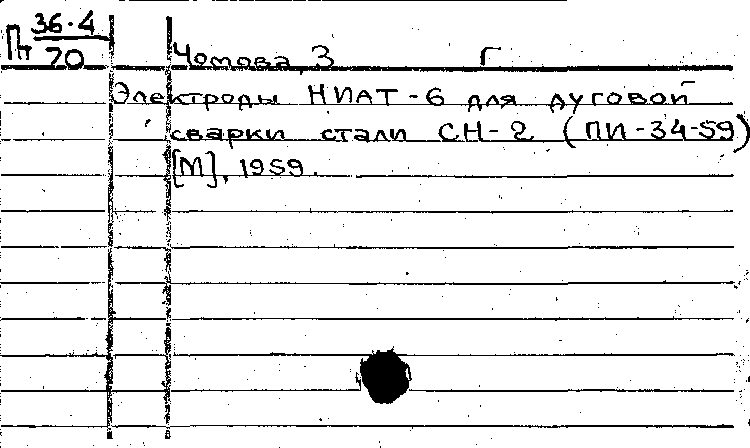 Пт 36.4
70
Чомова, З Г
Электроды НИАТ-6 для дуговой
сварки стали СН-2 (ПИ-34-59)
[М], 1959.